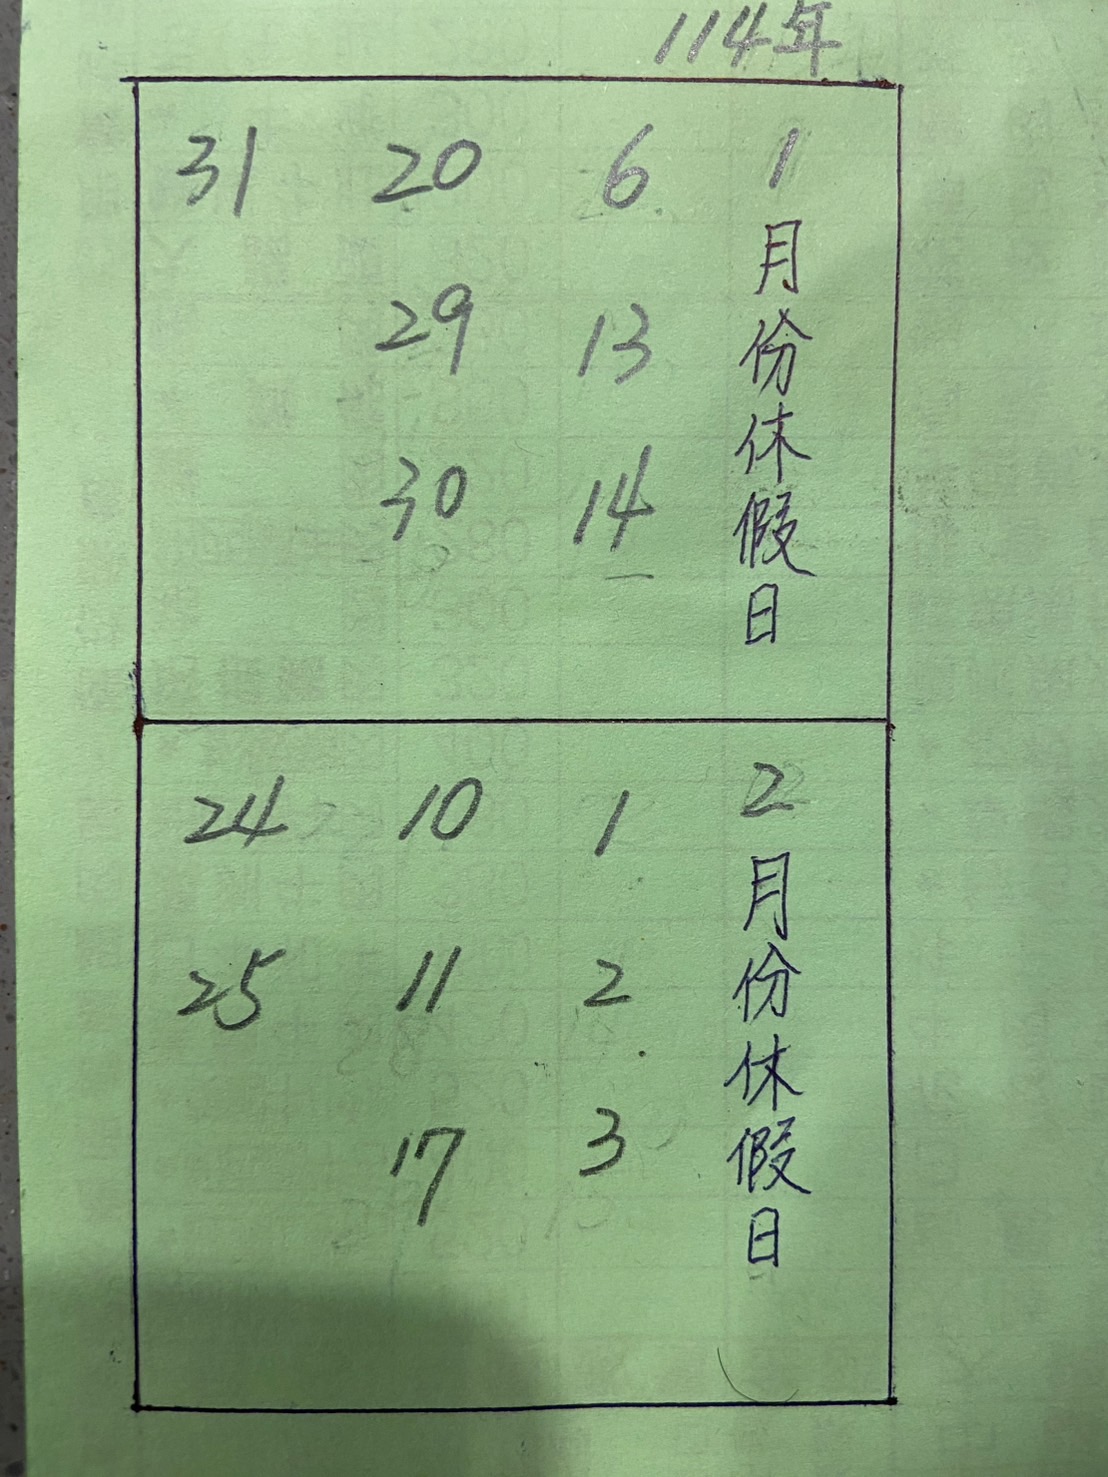 114年
1月份休假日
6
13
14
20
29
30
31
2月份休假日
1
2
3
10
11
17
24
25